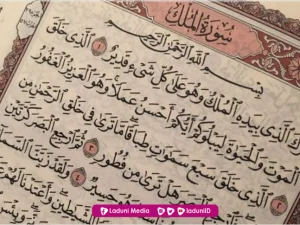 سُورَةُ الْمُلْكِ
بِسْمِ اللَّهِ الرَّحْمَٰنِ الرَّحِيمِ
الَّذِي بِيَدِهِ الْمُلْكُ وَهُوَ عَلَىٰ كُلِّ شَيْءٍ قَدِيرٌ ١ الَّذِي خَلَقَ
الْمَوْتَ وَالْحَيَوٰةَ لِيَبْلُوَكُمْ أَيُّكُمْ أَحْسَنُ عَمَلًا وَهُوَ الْعَزِيزُ الْغَفُورُ
٢ الَّذِي خَلَقَ سَبْعَ سَمَوَٰتٍ طِبَاقًا مَا تَرَىٰ فِي خَلْقِ الرَّحْمَٰنِ مِنْ
هَلْ تَرَىٰ مِنْ فُطُورٍ ٣ ثُمَّ ارْجِعِ الْبَصَرَ كَرَّتَيْنِ
وَهُوَ حَسِيرٌ ٤ وَلَقَدْ زَيَّنَّا السَّمَاءَ
لِلشَّيَٰطِينِ وَأَعْتَدْنَا لَهُمْ
Laduni Media laduniID